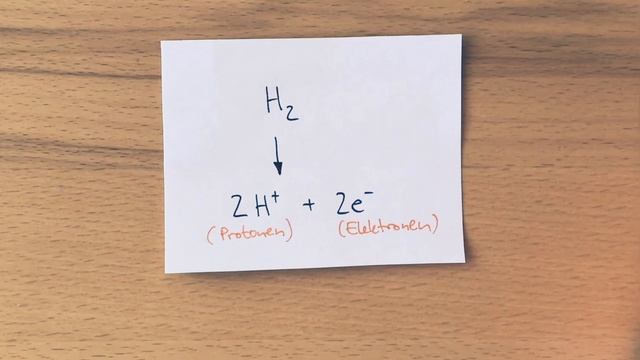 H₂
↓
2 H⁺ + 2e⁻
(Protonen) (Elektronen)